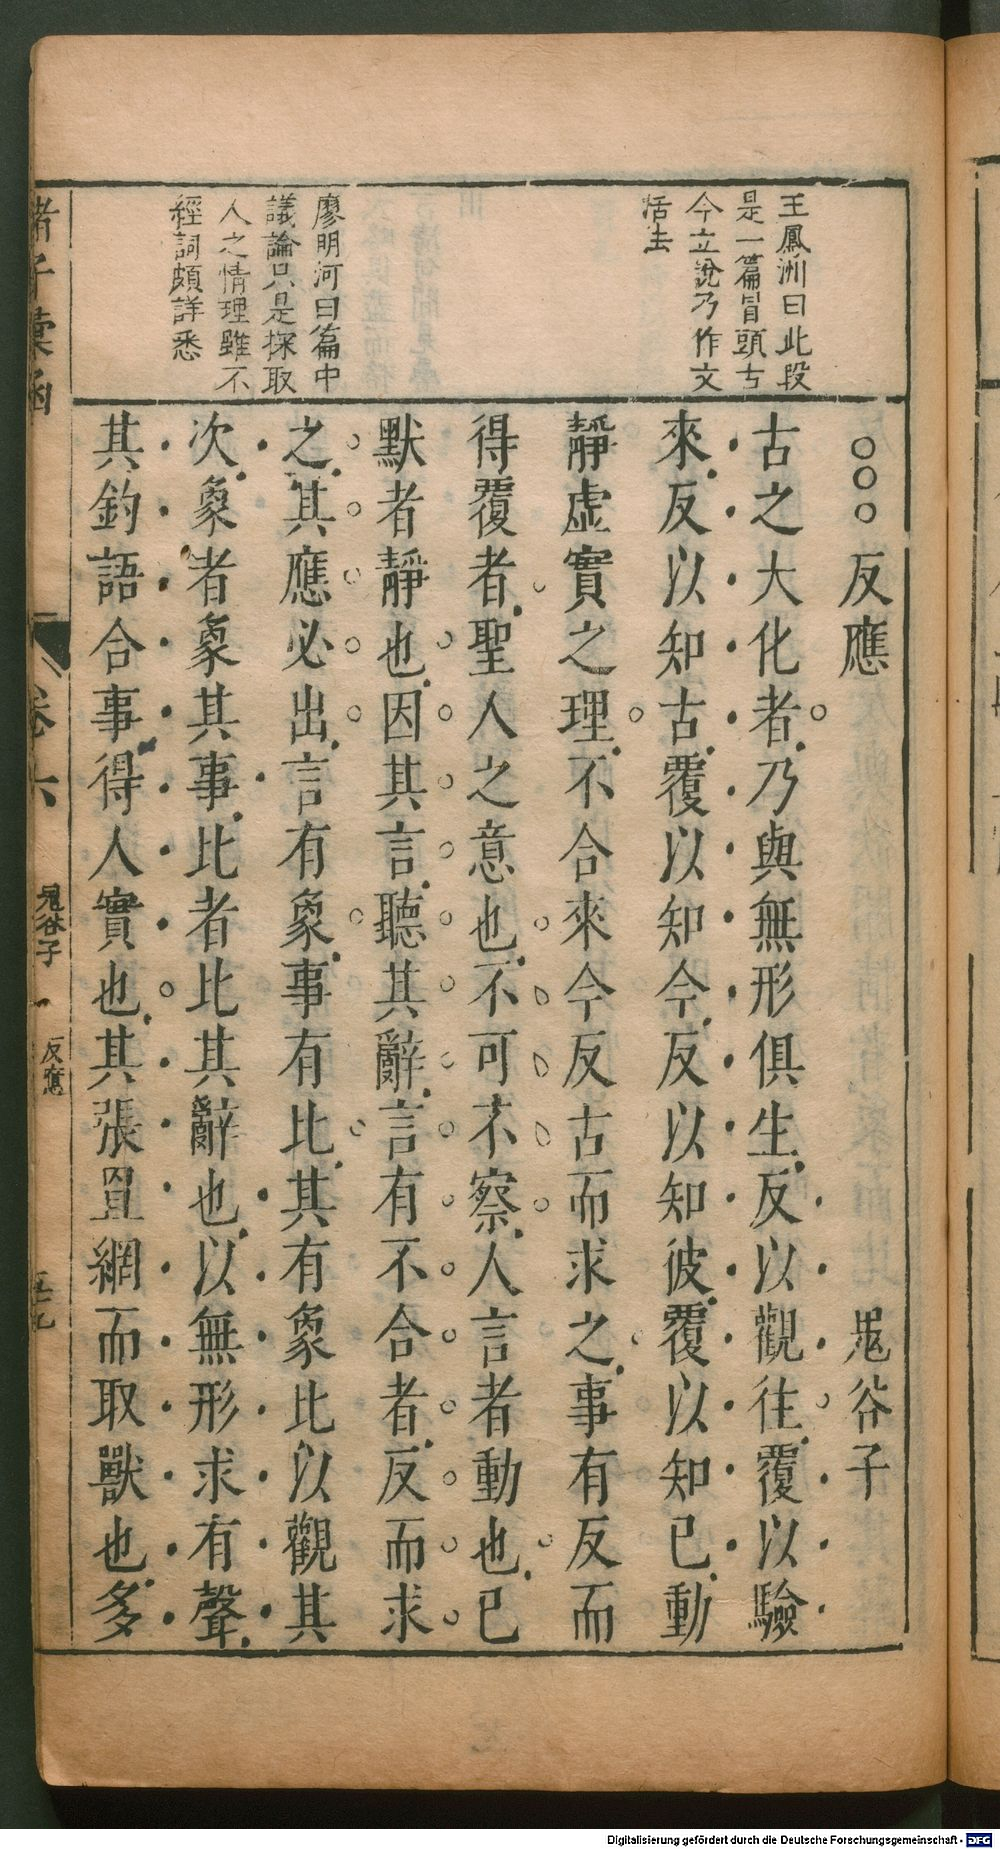 王鳳洲曰此段
是一篇冒頭古
今立說乃作文
活法
廖明河曰篇中
議論只是探取
人之情理雖不
經詞頗詳悉
○○○反應 鬼谷子
古之大化者乃與無形俱生反以觀往覆以驗
來反以知古覆以知今反以知彼覆以知己動
靜虛實之理不合來今反古而求之事有反而
得覆者聖人之意也不可不察人言者動也已
默者靜也因其言聽其辭言有不合者反而求
之其應必出言有象事有比其有象比以觀其
次象者象其事比者比其辭也以無形求有聲
其釣語合事得人實也其張罝網而取獸也多
諸子彙函
卷六 鬼谷子 反應
Digitalisierung gefördert durch die Deutsche Forschungsgemeinschaft - DFG